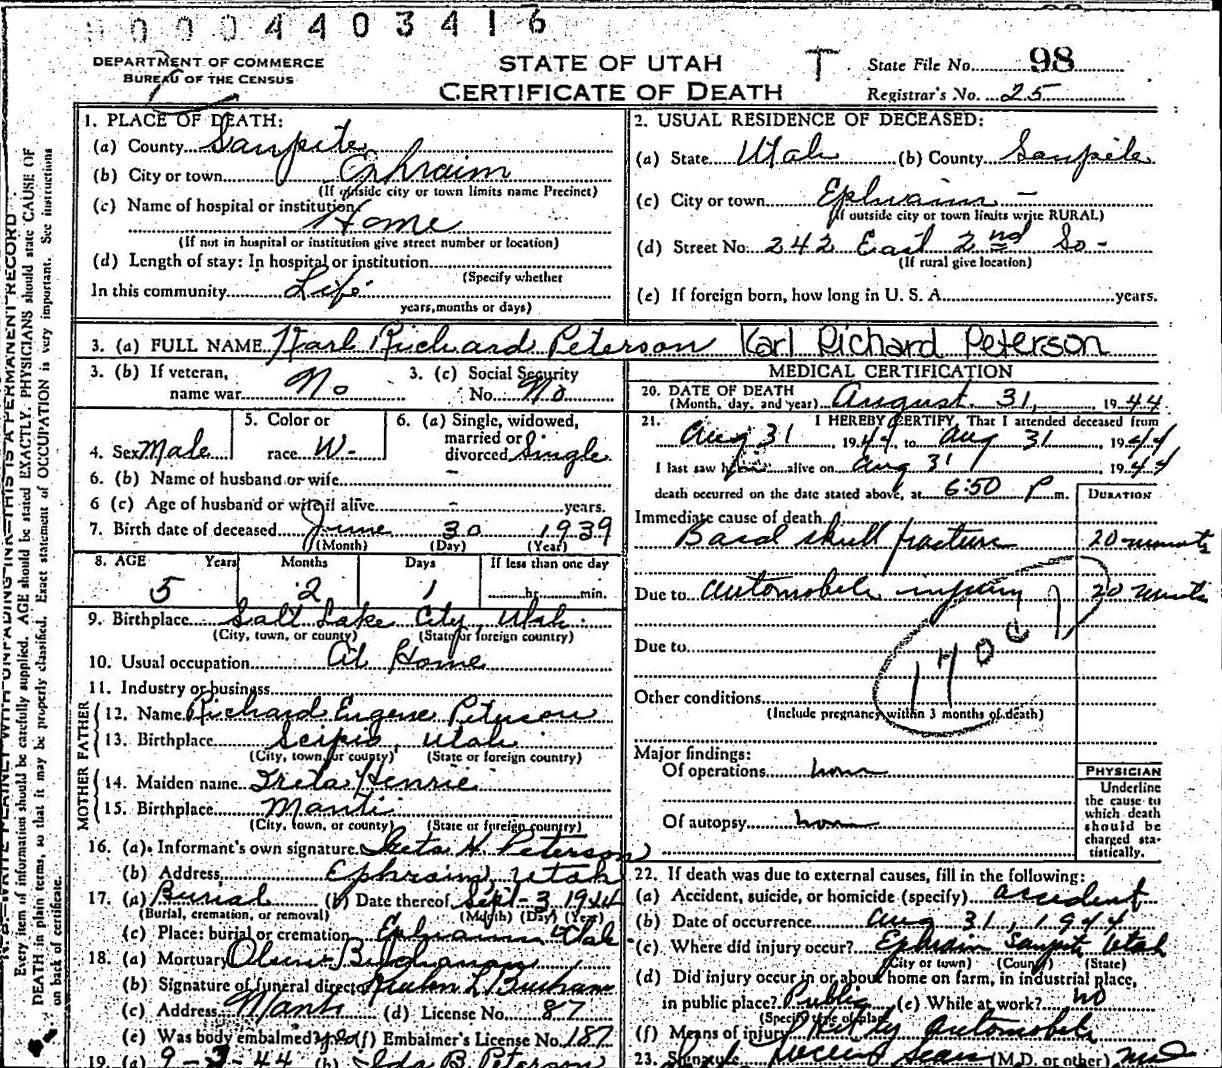 00004403416
DEPARTMENT OF COMMERCE
BUREAU OF THE CENSUS
STATE OF UTAH
CERTIFICATE OF DEATH
T
State File No. 98
Registrar's No. 25
1. PLACE OF DEATH:
(a) County Sanpete
(b) City or town Ephraim
(If outside city or town limits name Precinct)
(c) Name of hospital or institution
Home
(If not in hospital or institution give street number or location)
(d) Length of stay: In hospital or institution
(Specify whether
In this community Life
years, months or days)
2. USUAL RESIDENCE OF DECEASED:
(a) State Utah (b) County Sanpete
(c) City or town Ephraim
(If outside city or town limits write RURAL)
(d) Street No. 242 East 2nd So-
(If rural give location)
(e) If foreign born, how long in U. S. A. years.
3. (a) FULL NAME Karl Richard Peterson Karl Richard Peterson
3. (b) If veteran, name war No
3. (c) Social Security No. No
4. Sex Male
5. Color or race W-
6. (a) Single, widowed, married or divorced Single
6. (b) Name of husband or wife -
6 (c) Age of husband or wife if alive - years.
7. Birth date of deceased June 30 1939
(Month) (Day) (Year)
8. AGE Years Months Days If less than one day
5 2 1 hr. min.
9. Birthplace Salt Lake City, Utah
(City, town, or county) (State or foreign country)
10. Usual occupation At Home
11. Industry or business
FATHER
12. Name Richard Eugene Peterson
13. Birthplace Scipio, Utah
(City, town, or county) (State or foreign country)
MOTHER
14. Maiden name Henrie
15. Birthplace Manti
(City, town, or county) (State or foreign country)
16. (a) Informant's own signature H. Peterson
(b) Address Ephraim, Utah
17. (a) Burial (b) Date thereof Sept-3 1944
(Burial, cremation, or removal) (Month) (Day) (Year)
(c) Place: burial or cremation Ephraim Utah
18. (a) Mortuary Buchanan
(b) Signature of funeral director L. Buchanan
(c) Address Manti (d) License No. 87
(e) Was body embalmed yes (f) Embalmer's License No. 187
19. (a) 9-3-44 (b) Ida B. Peterson
MEDICAL CERTIFICATION
20. DATE OF DEATH
(Month, day, and year) August 31, 1944
21. I HEREBY CERTIFY, That I attended deceased from
Aug 31, 1944 to Aug 31, 1944
I last saw him alive on Aug 31, 1944
death occurred on the date stated above, at 6:50 P m.
DURATION
Immediate cause of death
Basal skull fracture 20 minutes
Due to automobile injury 20 minutes
Due to
170c
Other conditions
(Include pregnancy within 3 months of death)
Major findings:
Of operations none
Of autopsy none
PHYSICIAN
Underline
the cause to
which death
should be
charged sta-
tistically.
22. If death was due to external causes, fill in the following:
(a) Accident, suicide, or homicide (specify) accident
(b) Date of occurrence Aug 31, 1944
(c) Where did injury occur? Ephraim Sanpete Utah
(City or town) (County) (State)
(d) Did injury occur in or about home on farm, in industrial place,
in public place? Public (e) While at work? no
(Specify type of place)
(f) Means of injury Hit by automobile
23. Signature (M.D. or other) MD
N.B.—WRITE PLAINLY WITH UNFADING INK—THIS IS A PERMANENT RECORD
Every item of information should be carefully supplied. AGE should be stated EXACTLY. PHYSICIANS should state CAUSE OF
DEATH in plain terms, so that it may be properly classified. Exact statement of OCCUPATION is very important. See instructions
on back of certificate.